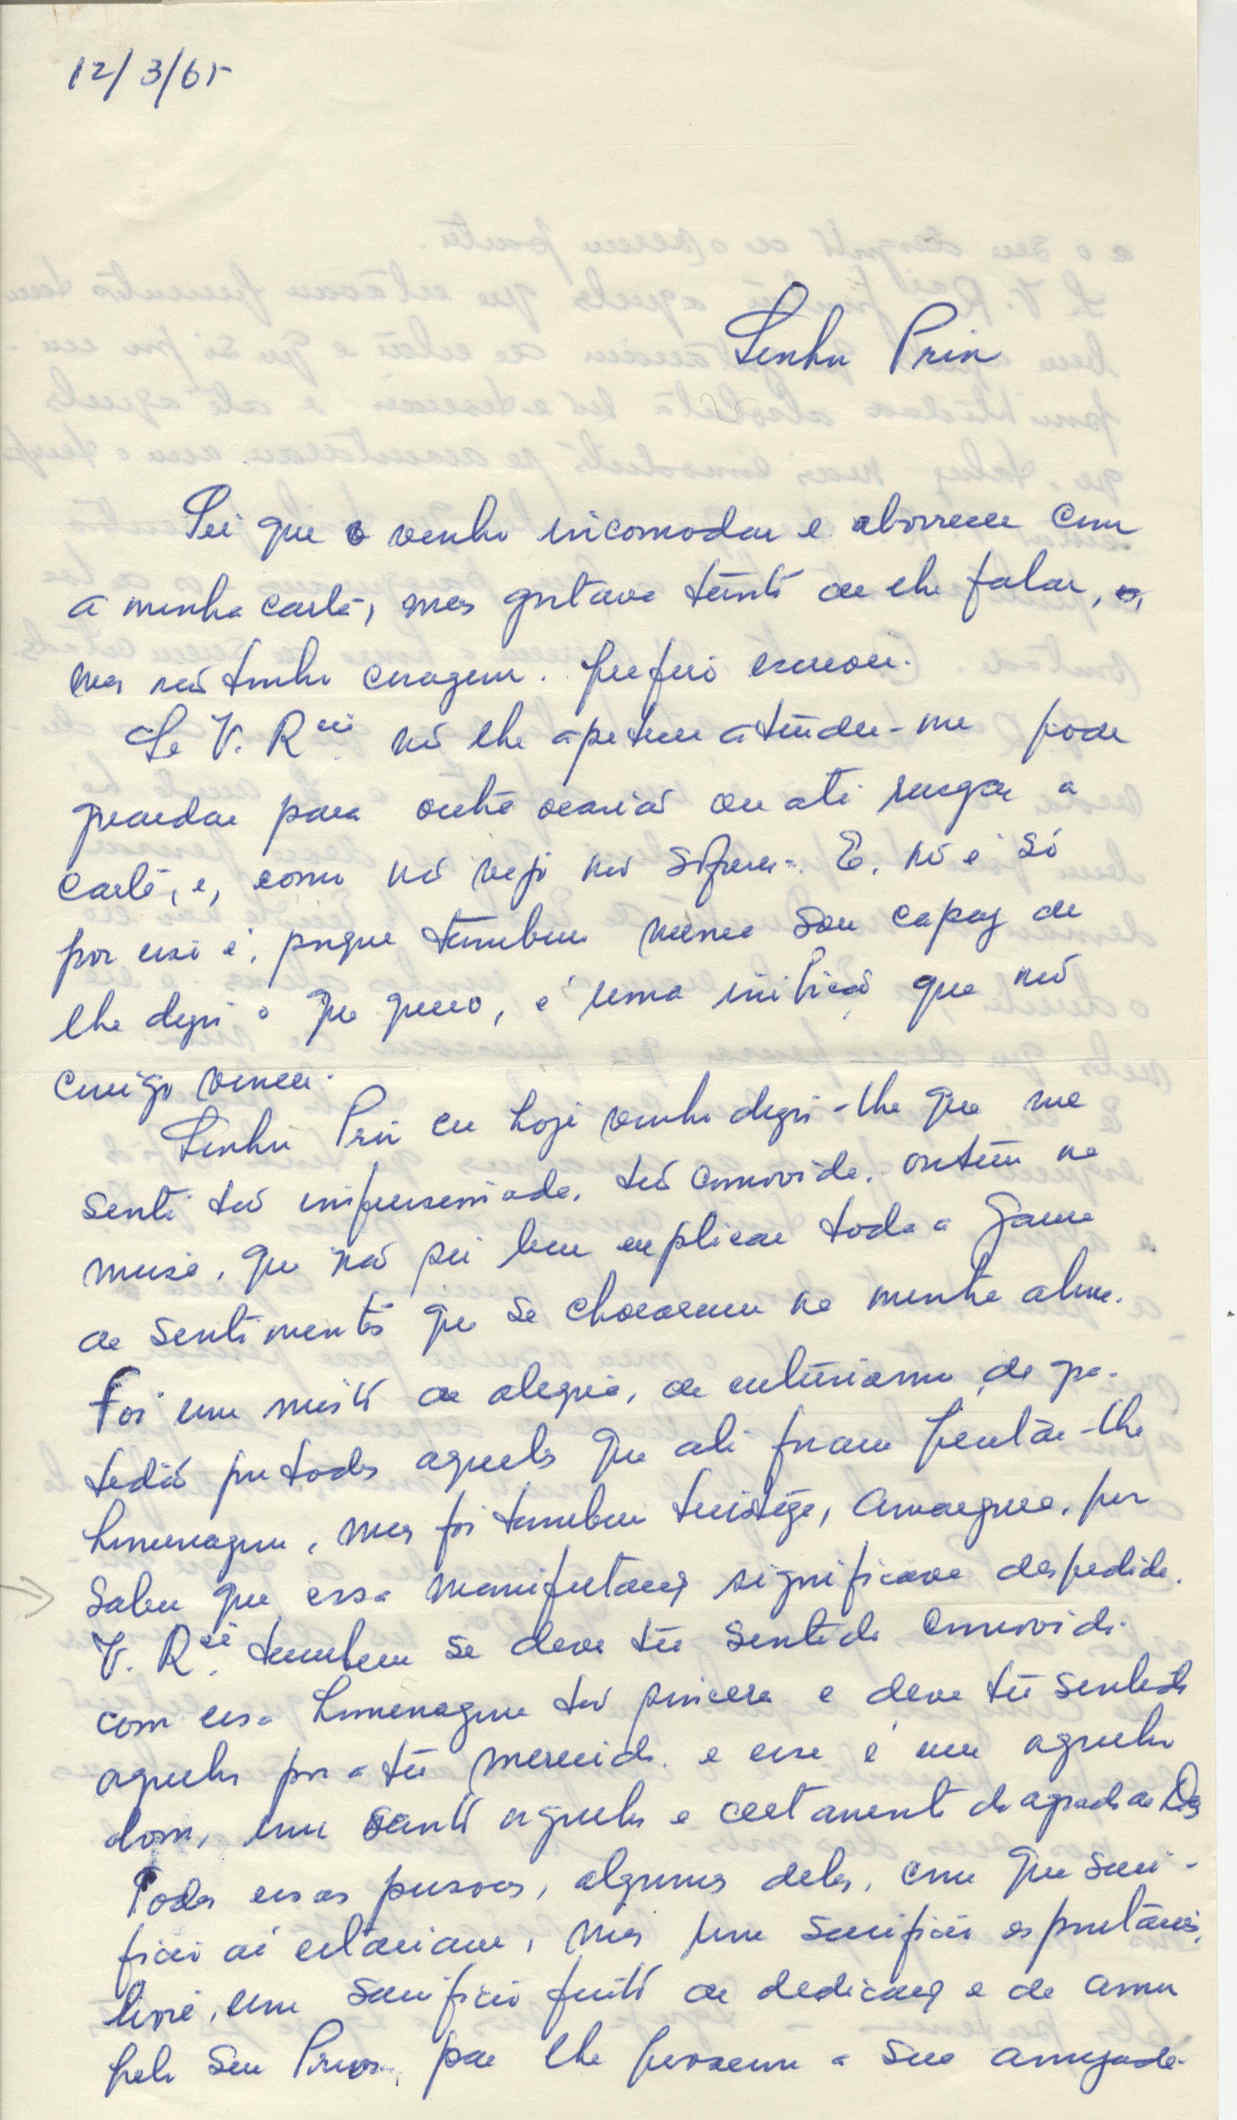 12/3/65
Senhor Prior
Sei que o venho incomodar e aborrecer com
a minha carta, mas gostava tanto de lhe falar,
mas não tenho coragem. Prefiro escrever.
Se V. Rcia não lhe apetecer atender-me pode
guardar para outra ocasião ou até rasgar a
carta, e, como não vejo não sofrerei. E, não é só
por isso é, porque também nunca sou capaz de
lhe dizer o que quero, é uma inibição que não
consigo vencer.
Senhor Prior eu hoje venho dizer-lhe que me
senti tão impressionada, tão comovida, ontem na
missa, que não sei bem explicar toda a gama
de sentimentos que se chocaram na minha alma.
Foi um misto de alegria, de entusiasmo, de gra-
tidão por todos aqueles que ali foram prestar-lhe
homenagem, mas foi também tristeza, amargura, por
saber que essa manifestação significava despedida.
V. Rcia também se deve ter sentido comovido
com essa homenagem tão sincera e deve ter sentido
orgulho por a ter merecido e esse é um orgulho
bom, um santo orgulho e certamente do agrado de Deus
Todas essas pessoas, algumas delas, com que sacri-
fício aí estariam, mas um sacrifício espontâneo,
livre, um sacrifício feito de dedicação e de amor
pelo seu Prior, para lhe provarem a sua amizade